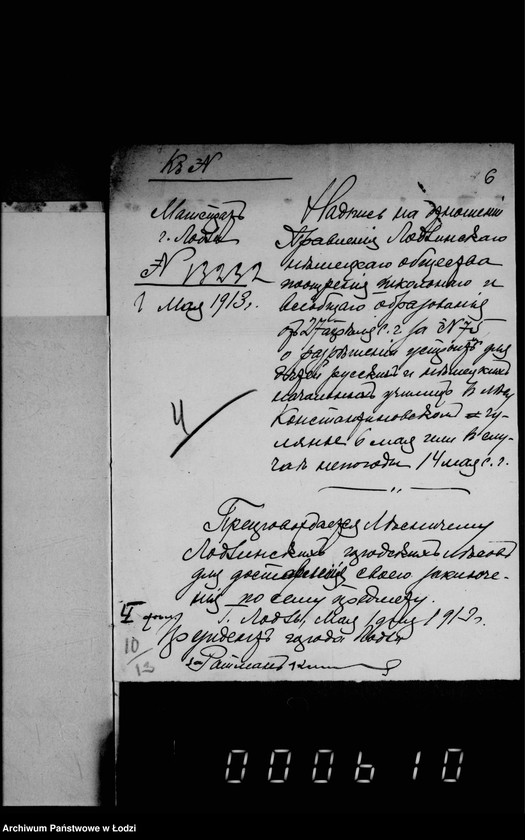 Къ №
6
Магистратъ
г. Лодзи
№ 13232
1 Мая 1913 г.
Надпись на отношенiи
Правленiя Лодзинскаго
нѣмецкаго общества
поощренiя школьнаго и
всеобщаго образованiя
отъ 27 апрѣля с. г. за № 75
о разрѣшенiи устроить для
дѣтей русскихъ и нѣмецкихъ
начальныхъ училищъ въ лѣсу
Константиновскомъ гу-
лянье 6 мая или въ слу-
чаѣ непогоды 14 мая с. г.
4
Препровождается Лѣсничему
Лодзинскихъ городскихъ лѣсовъ
для доставленiя своего заключе-
нiя по сему предмету.
г. Лодзь, Мая 1 дня 1913 г.
Президентъ города Лодзи
за Ратманъ
10/13
000610
Archiwum Państwowe w Łodzi